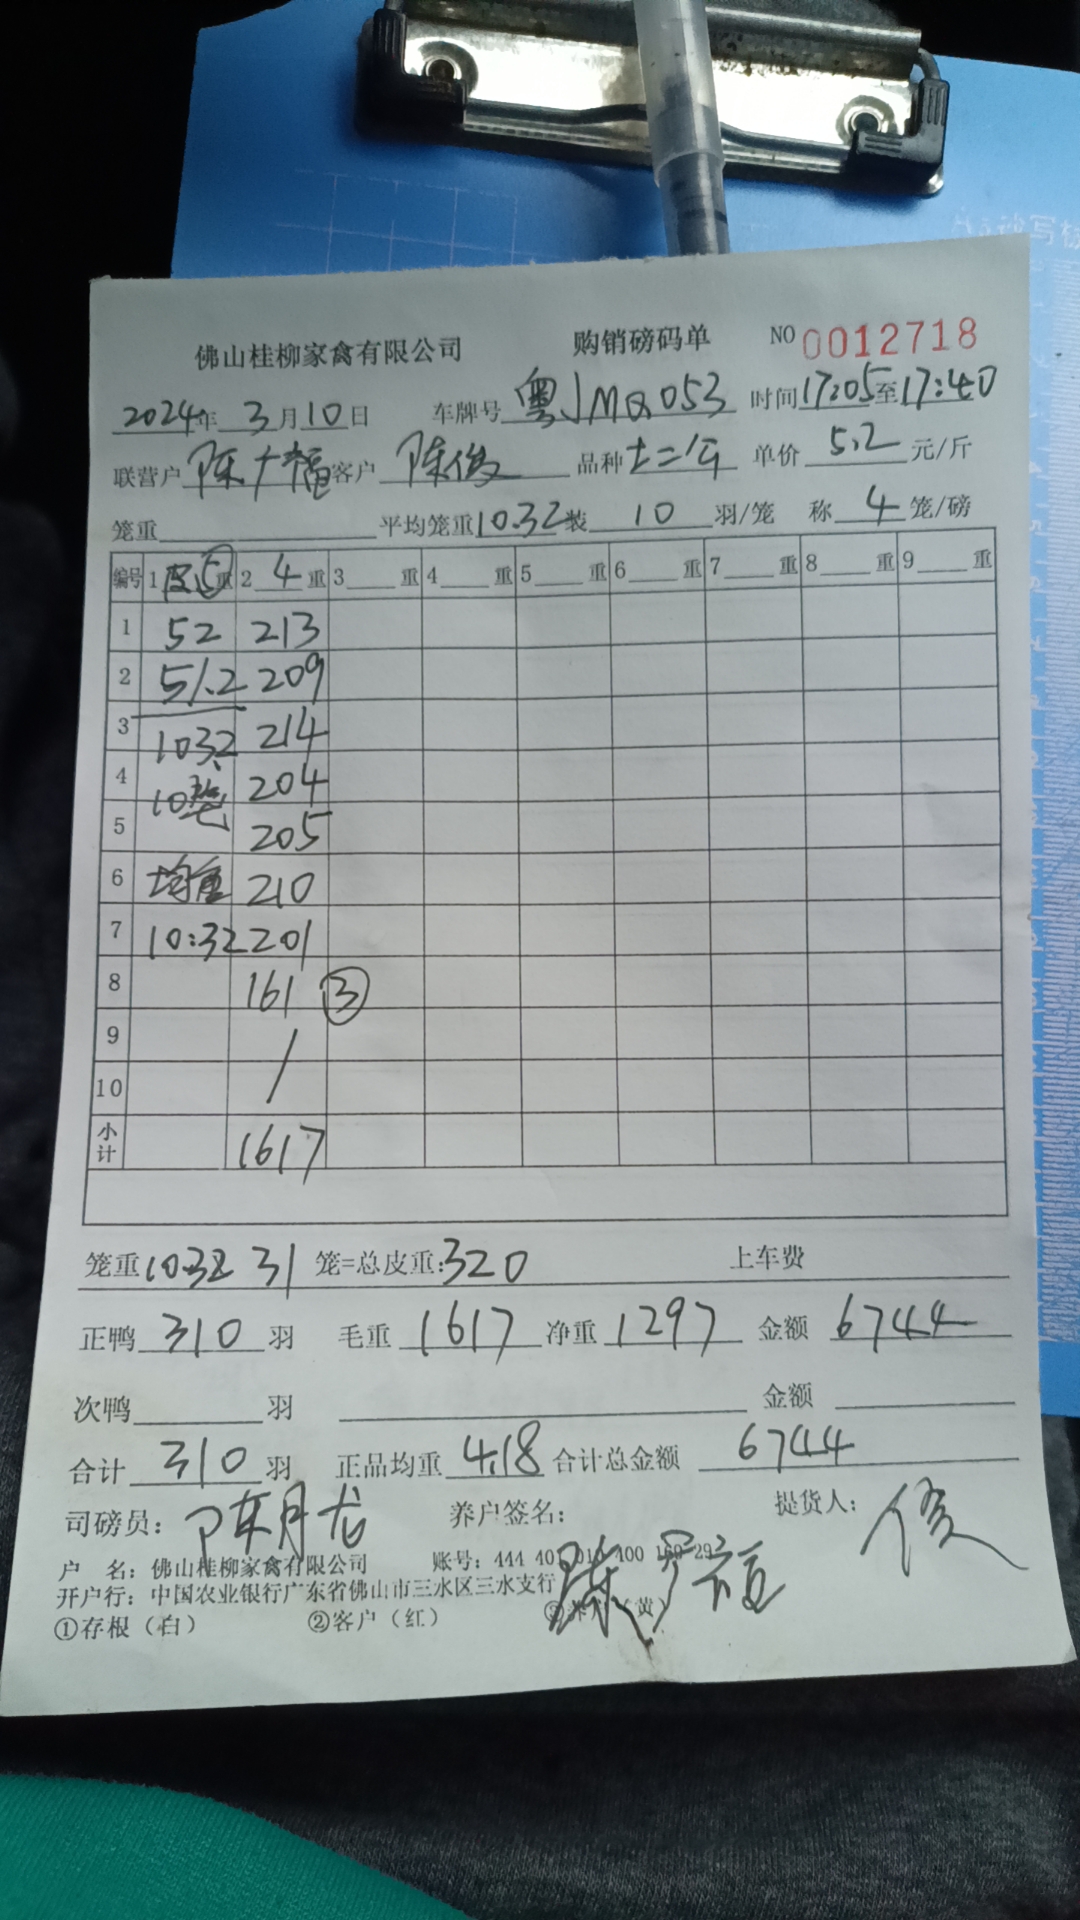 佛山桂柳家禽有限公司 购销磅码单 NO 0012718
2024年 3月10日 车牌号 粤JMQ053 时间17:05至17:40
联营户 陈广福 客户 陈俊 品种 土二公 单价 5.2 元/斤
笼重 平均笼重10.32装 10 羽/笼 称 4 笼/磅
编号 1 皮5重 2 4 重 3 重 4 重 5 重 6 重 7 重 8 重 9 重
1 52 213
2 51.2 209
3 103.2 214
4 10笼 204
5 205
6 均重 210
7 10:32 201
8 161 ③
9 /
10
小计 1617
笼重10.32 31 笼=总皮重:320 上车费
正鸭 310 羽 毛重 1617 净重 1297 金额 6744
次鸭 羽 金额
合计 310 羽 正品均重 4.18 合计总金额 6744
司磅员: 陈月龙 养户签名: 陈广福 提货人: 俊
户 名: 佛山桂柳家禽有限公司 账号: 444 40
开户行: 中国农业银行广东省佛山市三水区三水支行
①存根（白） ②客户（红） （黄）